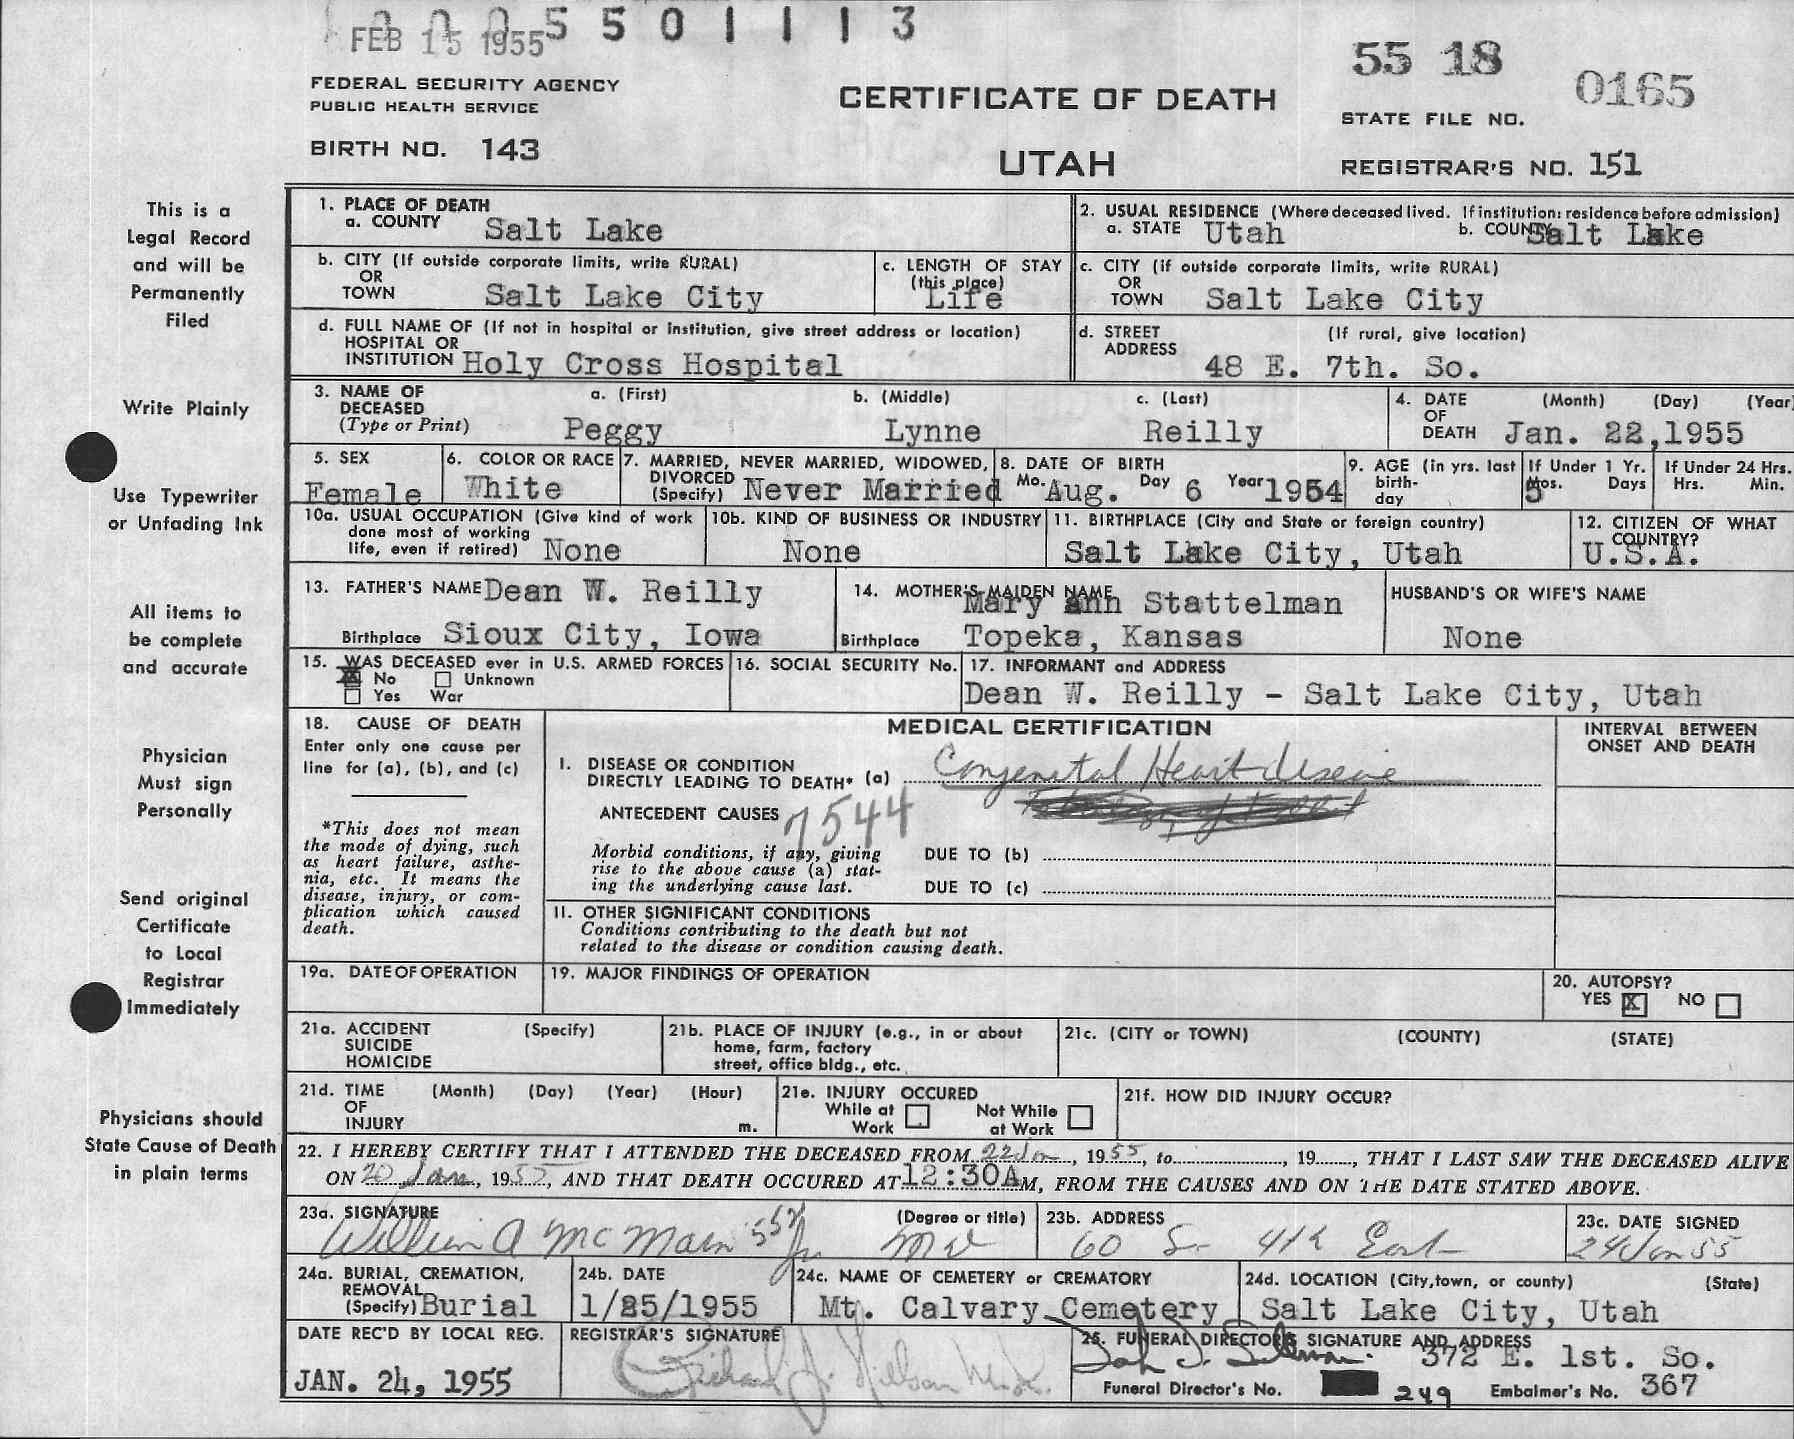 FEB 15 1955
5 5 0 1 1 1 3
55 18
0165
FEDERAL SECURITY AGENCY
PUBLIC HEALTH SERVICE
CERTIFICATE OF DEATH
STATE FILE NO.
BIRTH NO. 143
UTAH
REGISTRAR'S NO. 151
This is a
Legal Record
and will be
Permanently
Filed
Write Plainly
Use Typewriter
or Unfading Ink
All items to
be complete
and accurate
Physician
Must sign
Personally
Send original
Certificate
to Local
Registrar
Immediately
Physicians should
State Cause of Death
in plain terms
1. PLACE OF DEATH
a. COUNTY Salt Lake
2. USUAL RESIDENCE (Where deceased lived. If institution: residence before admission)
a. STATE Utah b. COUNTY Salt Lake
b. CITY (If outside corporate limits, write RURAL)
OR
TOWN Salt Lake City
c. LENGTH OF STAY
(this place)
Life
c. CITY (if outside corporate limits, write RURAL)
OR
TOWN Salt Lake City
d. FULL NAME OF (If not in hospital or institution, give street address or location)
HOSPITAL OR
INSTITUTION Holy Cross Hospital
d. STREET (If rural, give location)
ADDRESS
48 E. 7th. So.
3. NAME OF a. (First) b. (Middle) c. (Last)
DECEASED
(Type or Print) Peggy Lynne Reilly
4. DATE (Month) (Day) (Year)
OF
DEATH Jan. 22,1955
5. SEX
Female
6. COLOR OR RACE
White
7. MARRIED, NEVER MARRIED, WIDOWED,
DIVORCED
(Specify) Never Married
8. DATE OF BIRTH
Mo. Aug. Day 6 Year 1954
9. AGE (in yrs. last
birth-
day
If Under 1 Yr.
Mos. Days
5
If Under 24 Hrs.
Hrs. Min.
10a. USUAL OCCUPATION (Give kind of work
done most of working
life, even if retired) None
10b. KIND OF BUSINESS OR INDUSTRY
None
11. BIRTHPLACE (City and State or foreign country)
Salt Lake City, Utah
12. CITIZEN OF WHAT
COUNTRY?
U.S.A.
13. FATHER'S NAME Dean W. Reilly
Birthplace Sioux City, Iowa
14. MOTHER'S MAIDEN NAME
Mary ann Stattelman
Birthplace Topeka, Kansas
HUSBAND'S OR WIFE'S NAME
None
15. WAS DECEASED ever in U.S. ARMED FORCES
No Unknown
Yes War
16. SOCIAL SECURITY No.
17. INFORMANT and ADDRESS
Dean W. Reilly - Salt Lake City, Utah
18. CAUSE OF DEATH
Enter only one cause per
line for (a), (b), and (c)
*This does not mean
the mode of dying, such
as heart failure, asthe-
nia, etc. It means the
disease, injury, or com-
plication which caused
death.
MEDICAL CERTIFICATION
INTERVAL BETWEEN
ONSET AND DEATH
I. DISEASE OR CONDITION
DIRECTLY LEADING TO DEATH* (a) Congenital Heart disease
ANTECEDENT CAUSES 7544
Morbid conditions, if any, giving
rise to the above cause (a) stat-
ing the underlying cause last.
DUE TO (b)
DUE TO (c)
II. OTHER SIGNIFICANT CONDITIONS
Conditions contributing to the death but not
related to the disease or condition causing death.
19a. DATE OF OPERATION
19. MAJOR FINDINGS OF OPERATION
20. AUTOPSY?
YES X NO
21a. ACCIDENT (Specify)
SUICIDE
HOMICIDE
21b. PLACE OF INJURY (e.g., in or about
home, farm, factory
street, office bldg., etc.
21c. (CITY or TOWN) (COUNTY) (STATE)
21d. TIME (Month) (Day) (Year) (Hour)
OF
INJURY m.
21e. INJURY OCCURED
While at Not While
Work at Work
21f. HOW DID INJURY OCCUR?
22. I HEREBY CERTIFY THAT I ATTENDED THE DECEASED FROM 22 Jan, 1955, to, 19, THAT I LAST SAW THE DECEASED ALIVE
ON 20 Jan, 1955, AND THAT DEATH OCCURED AT 12:30A M, FROM THE CAUSES AND ON THE DATE STATED ABOVE.
23a. SIGNATURE (Degree or title)
William A McMain Jr MD
23b. ADDRESS
60 So 4th East
23c. DATE SIGNED
24 Jan 55
24a. BURIAL, CREMATION,
REMOVAL
(Specify) Burial
24b. DATE
1/25/1955
24c. NAME OF CEMETERY or CREMATORY
Mt. Calvary Cemetery
24d. LOCATION (City, town, or county) (State)
Salt Lake City, Utah
DATE REC'D BY LOCAL REG.
JAN. 24, 1955
REGISTRAR'S SIGNATURE
25. FUNERAL DIRECTOR'S SIGNATURE AND ADDRESS
372 E. 1st. So.
Funeral Director's No. 249 Embalmer's No. 367